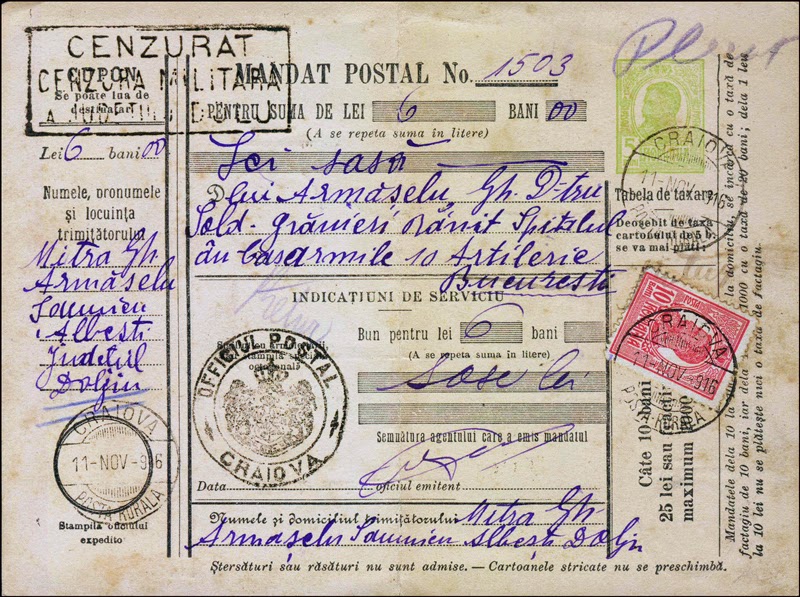 CENZURAT
CENZURA MILITARA
CUPON
Se poate lua de
destinatar
Lei 6 bani 00
Numele, pronumele
și locuința
trimițătorului
Mitra Gh.
Armășelu
Albești
Județul
Doljiu
CRAIOVA
11-NOV-916
POSTA RURALA
Stampila oficiului
expeditor
MANDAT POSTAL No. 1503
PENTRU SUMA DE LEI 6 BANI 00
(A se repeta suma în litere)
Lei sasă
D lui Armășelu, Gh. D-tru
Sold. grănieri rănit Spitalul
din Casarmile 10 Artilerie
Bucuresti
INDICAȚIUNI DE SERVICIU
Bun pentru lei 6 bani
(A se repeta suma în litere)
sase lei
Semnătura agentului care a emis mandatul
OFFICIUL POSTAL
CRAIOVA
Data oficiul emitent
Numele și domiciliul trimițătorului Mitra Gh.
Armășelu Albești Dolju
Ștersături sau răsături nu sunt admise. — Cartoanele stricate nu se preschimbă.
5
CRAIOVA
11-NOV-916
Tabela de taxare
Deosebit de taxa
cartonului de 5 b.
se va mai plăti:
10
POSTA
CRAIOVA
11-NOV-916
Câte 10 bani
25 lei sau fracți
maximum 1000
Mandatele dela 10 la
la domiciliu, se încarcă cu o taxă de
factagiu de 10 bani, iar dela
1000 cu o taxă de 20 bani; dela 1 leu
la 10 lei nu se plătește nici o taxă de factagiu.